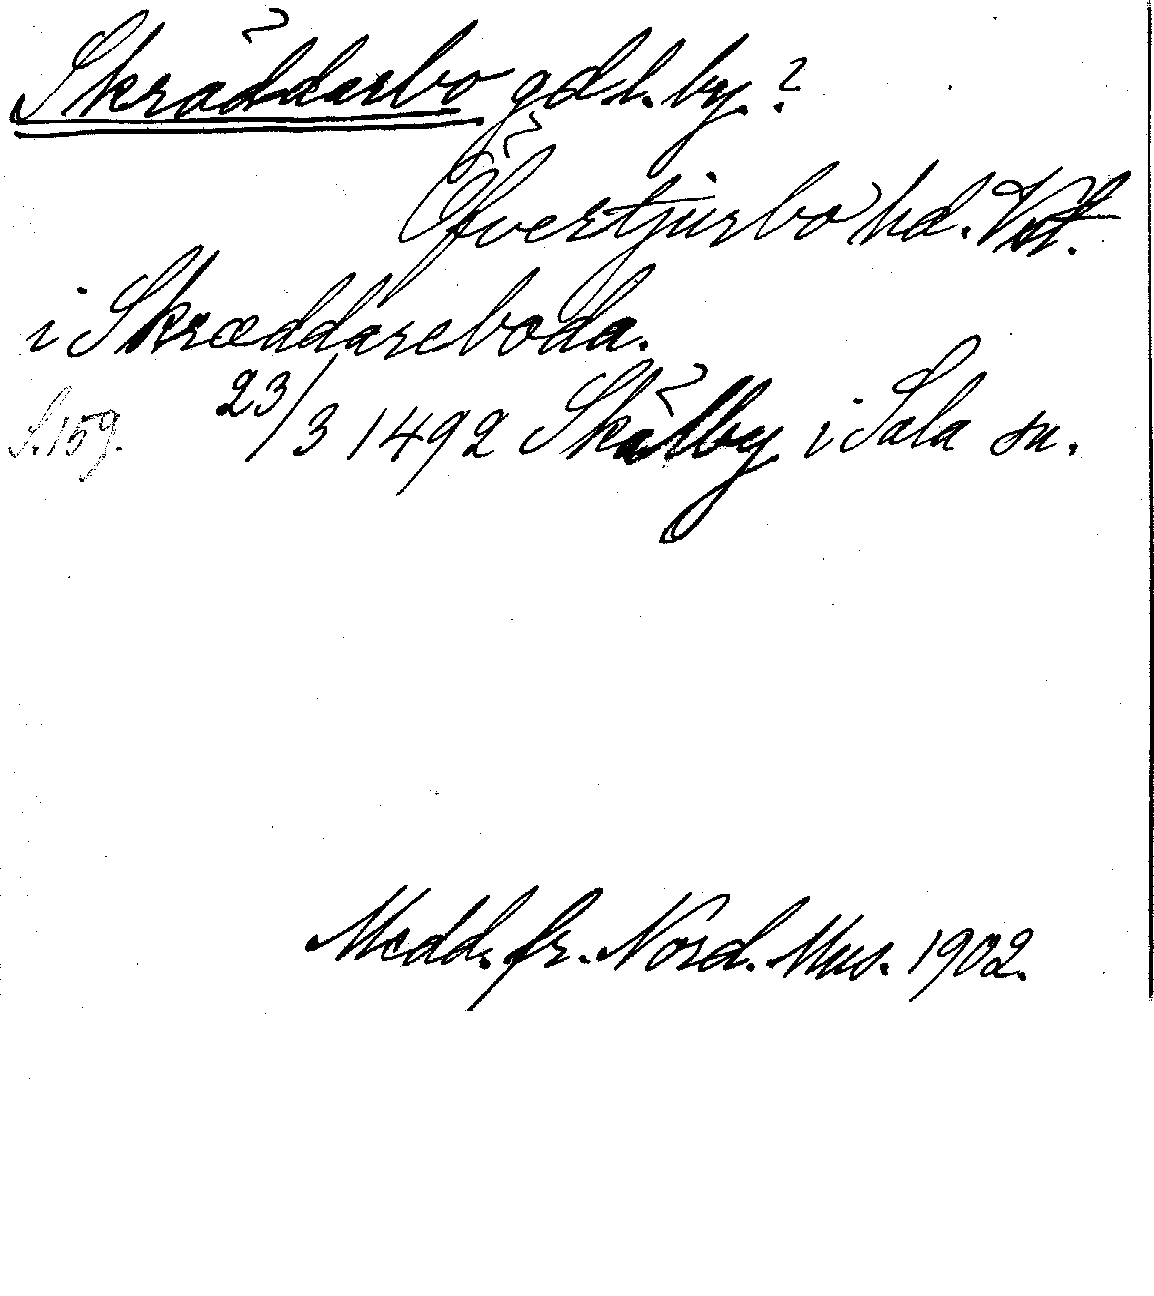 Skräddarbo gd l. by. ?
Öfvertjurbo hd. Vstm.
i Skræddareboda.
S. 159. 23/3 1492 Skälby i Sala sn.
Medd. fr. Nord. Mus. 1902.